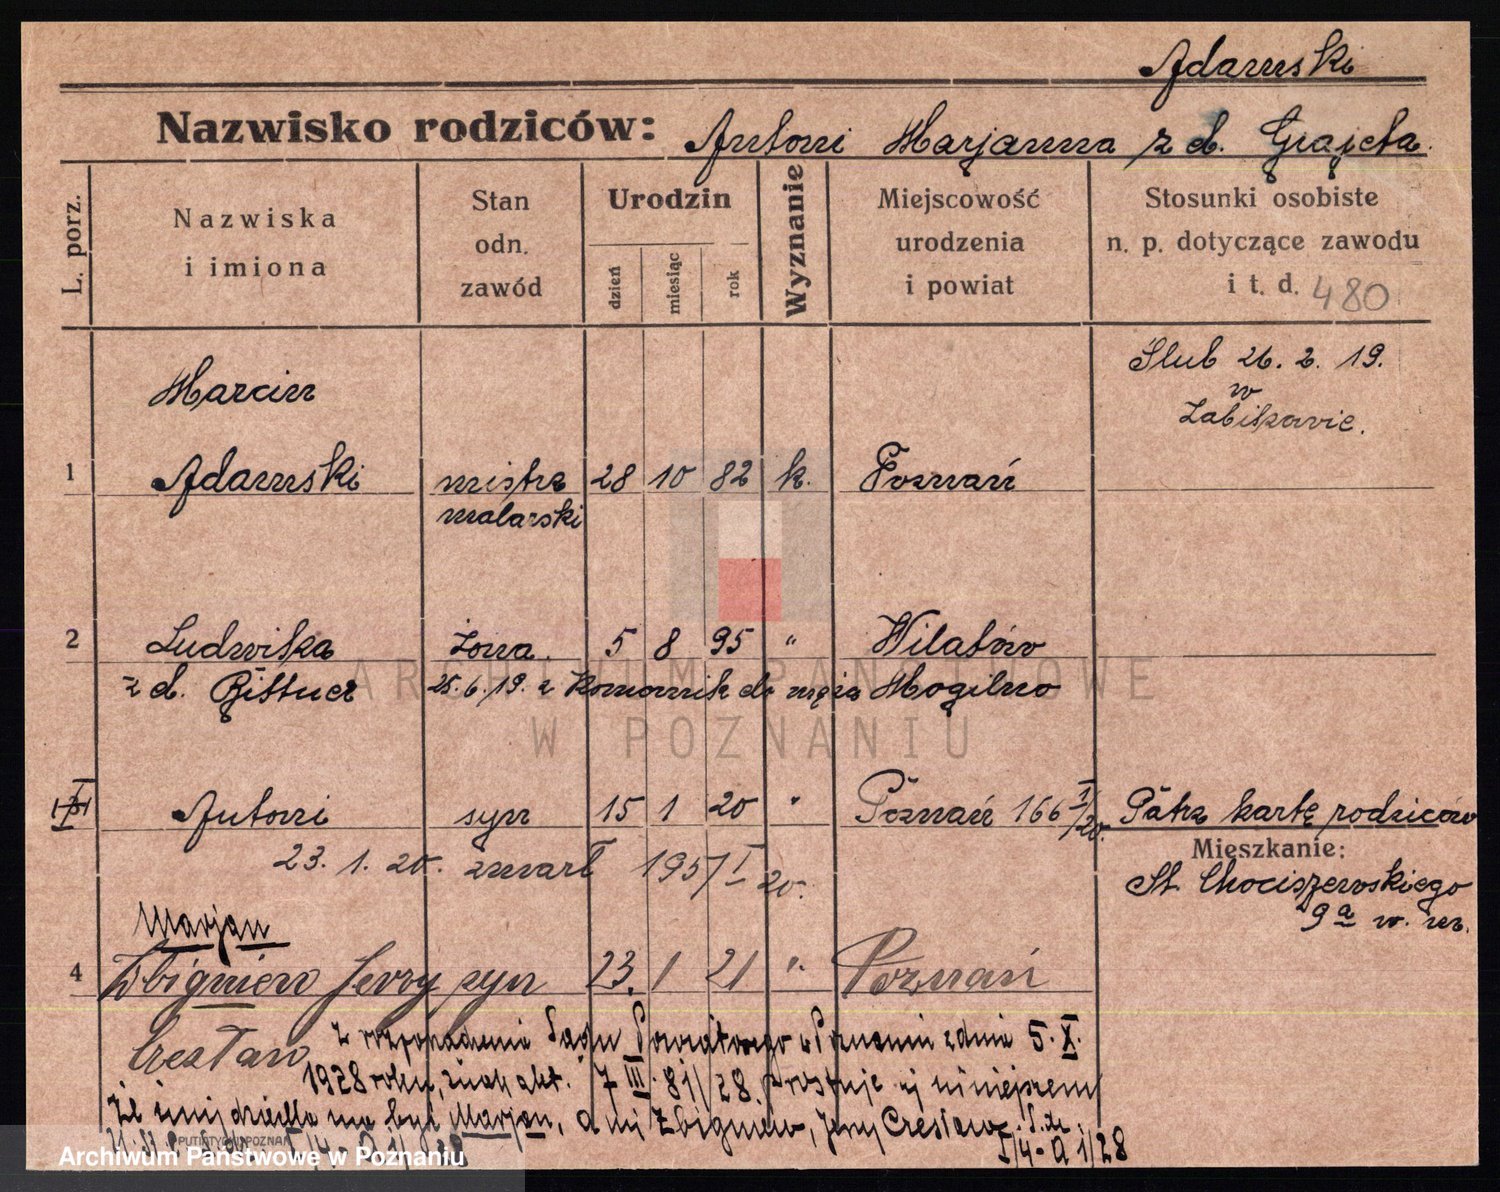 Adamski
Nazwisko rodziców: Antoni Marjanna z d. Grajeta.
L. porz.
Nazwiska
i imiona
Stan
odn.
zawód
Urodzin
dzień
miesiąc
rok
Wyznanie
Miejscowość
urodzenia
i powiat
Stosunki osobiste
n. p. dotyczące zawodu
i t. d. 480
Marcin
Ślub 26. 2. 19.
w
Żabikowie.
1 Adamski mistrz 28 10 82 k. Poznań
malarski
2 Ludwika żona. 5 8 95 " Wilatowo
z d. Bittner 25.6.19. z Komornik do męża Mogilno
I Antoni syn 15 1 20 " Poznań 166 I/20. Patrz kartę rodziców
23. 1. 20. zmarł 195/I 20.
Mieszkanie:
St. Chociszewskiego
9a w. rez.
Marjan
4 Zbigniew Jerzy syn 23. 1 21 ". Poznań
Czesław
Z rozporządzenia Sądu Powiatowego w Poznaniu z dnia 5. X.
1928 roku, znak akt. 7 III. 81/28. prostuje się niniejszem
że imię dziecka ma być Marjan, a nie Zbigniew, Jerzy Czesław. S. de.
I/4-a 1/28
ARCHIWUM PAŃSTWOWE
W POZNANIU
Archiwum Państwowe w Poznaniu